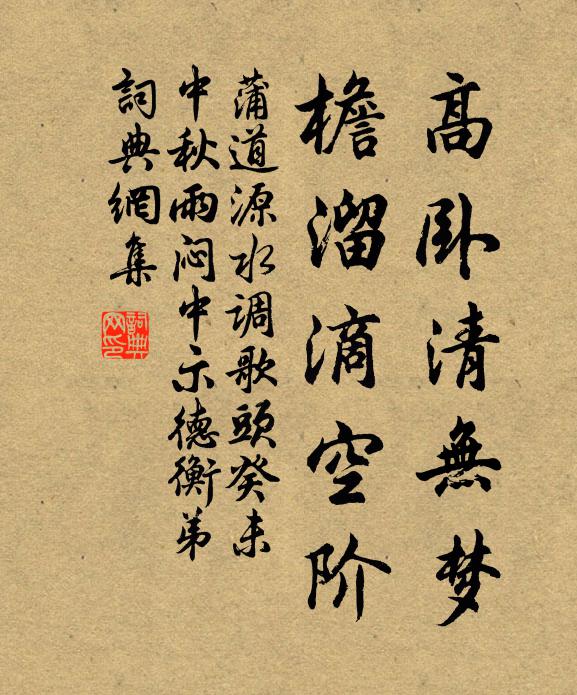 高卧清無梦
檐溜滴空阶
蒲道源水调歌頭癸未
中秋雨闷中示德衡弟
詞典網集
詞典
网印